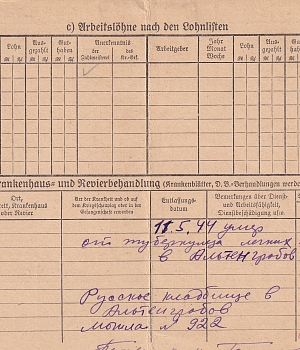 c) Arbeitslöhne nach den Lohnlisten
Lohn Aus- gezahlt Gut- haben Anerkenntnis der Zahlmeisterei des Kr.-Gef. Arbeitgeber Jahr Monat Woche Lohn Aus- gezahlt Gut- haben
krankenhaus- und Revierbehandlung (Krankenblätter, D. B.-Verhandlungen werde
Ort, Krankenhaus oder Revier
Art der Krankheit und ob auf dem Kriegsschauplatz oder in der Gefangenschaft erworben
Entlassungs- datum
Bemerkungen über Dienst- und Arbeitsfähigkeit, Dienstbeschädigung usw.
11.5.44 умер
от туберкулеза легких
в Альтенгробов
Русское кладбище в
Альтенгробов
могила № 922